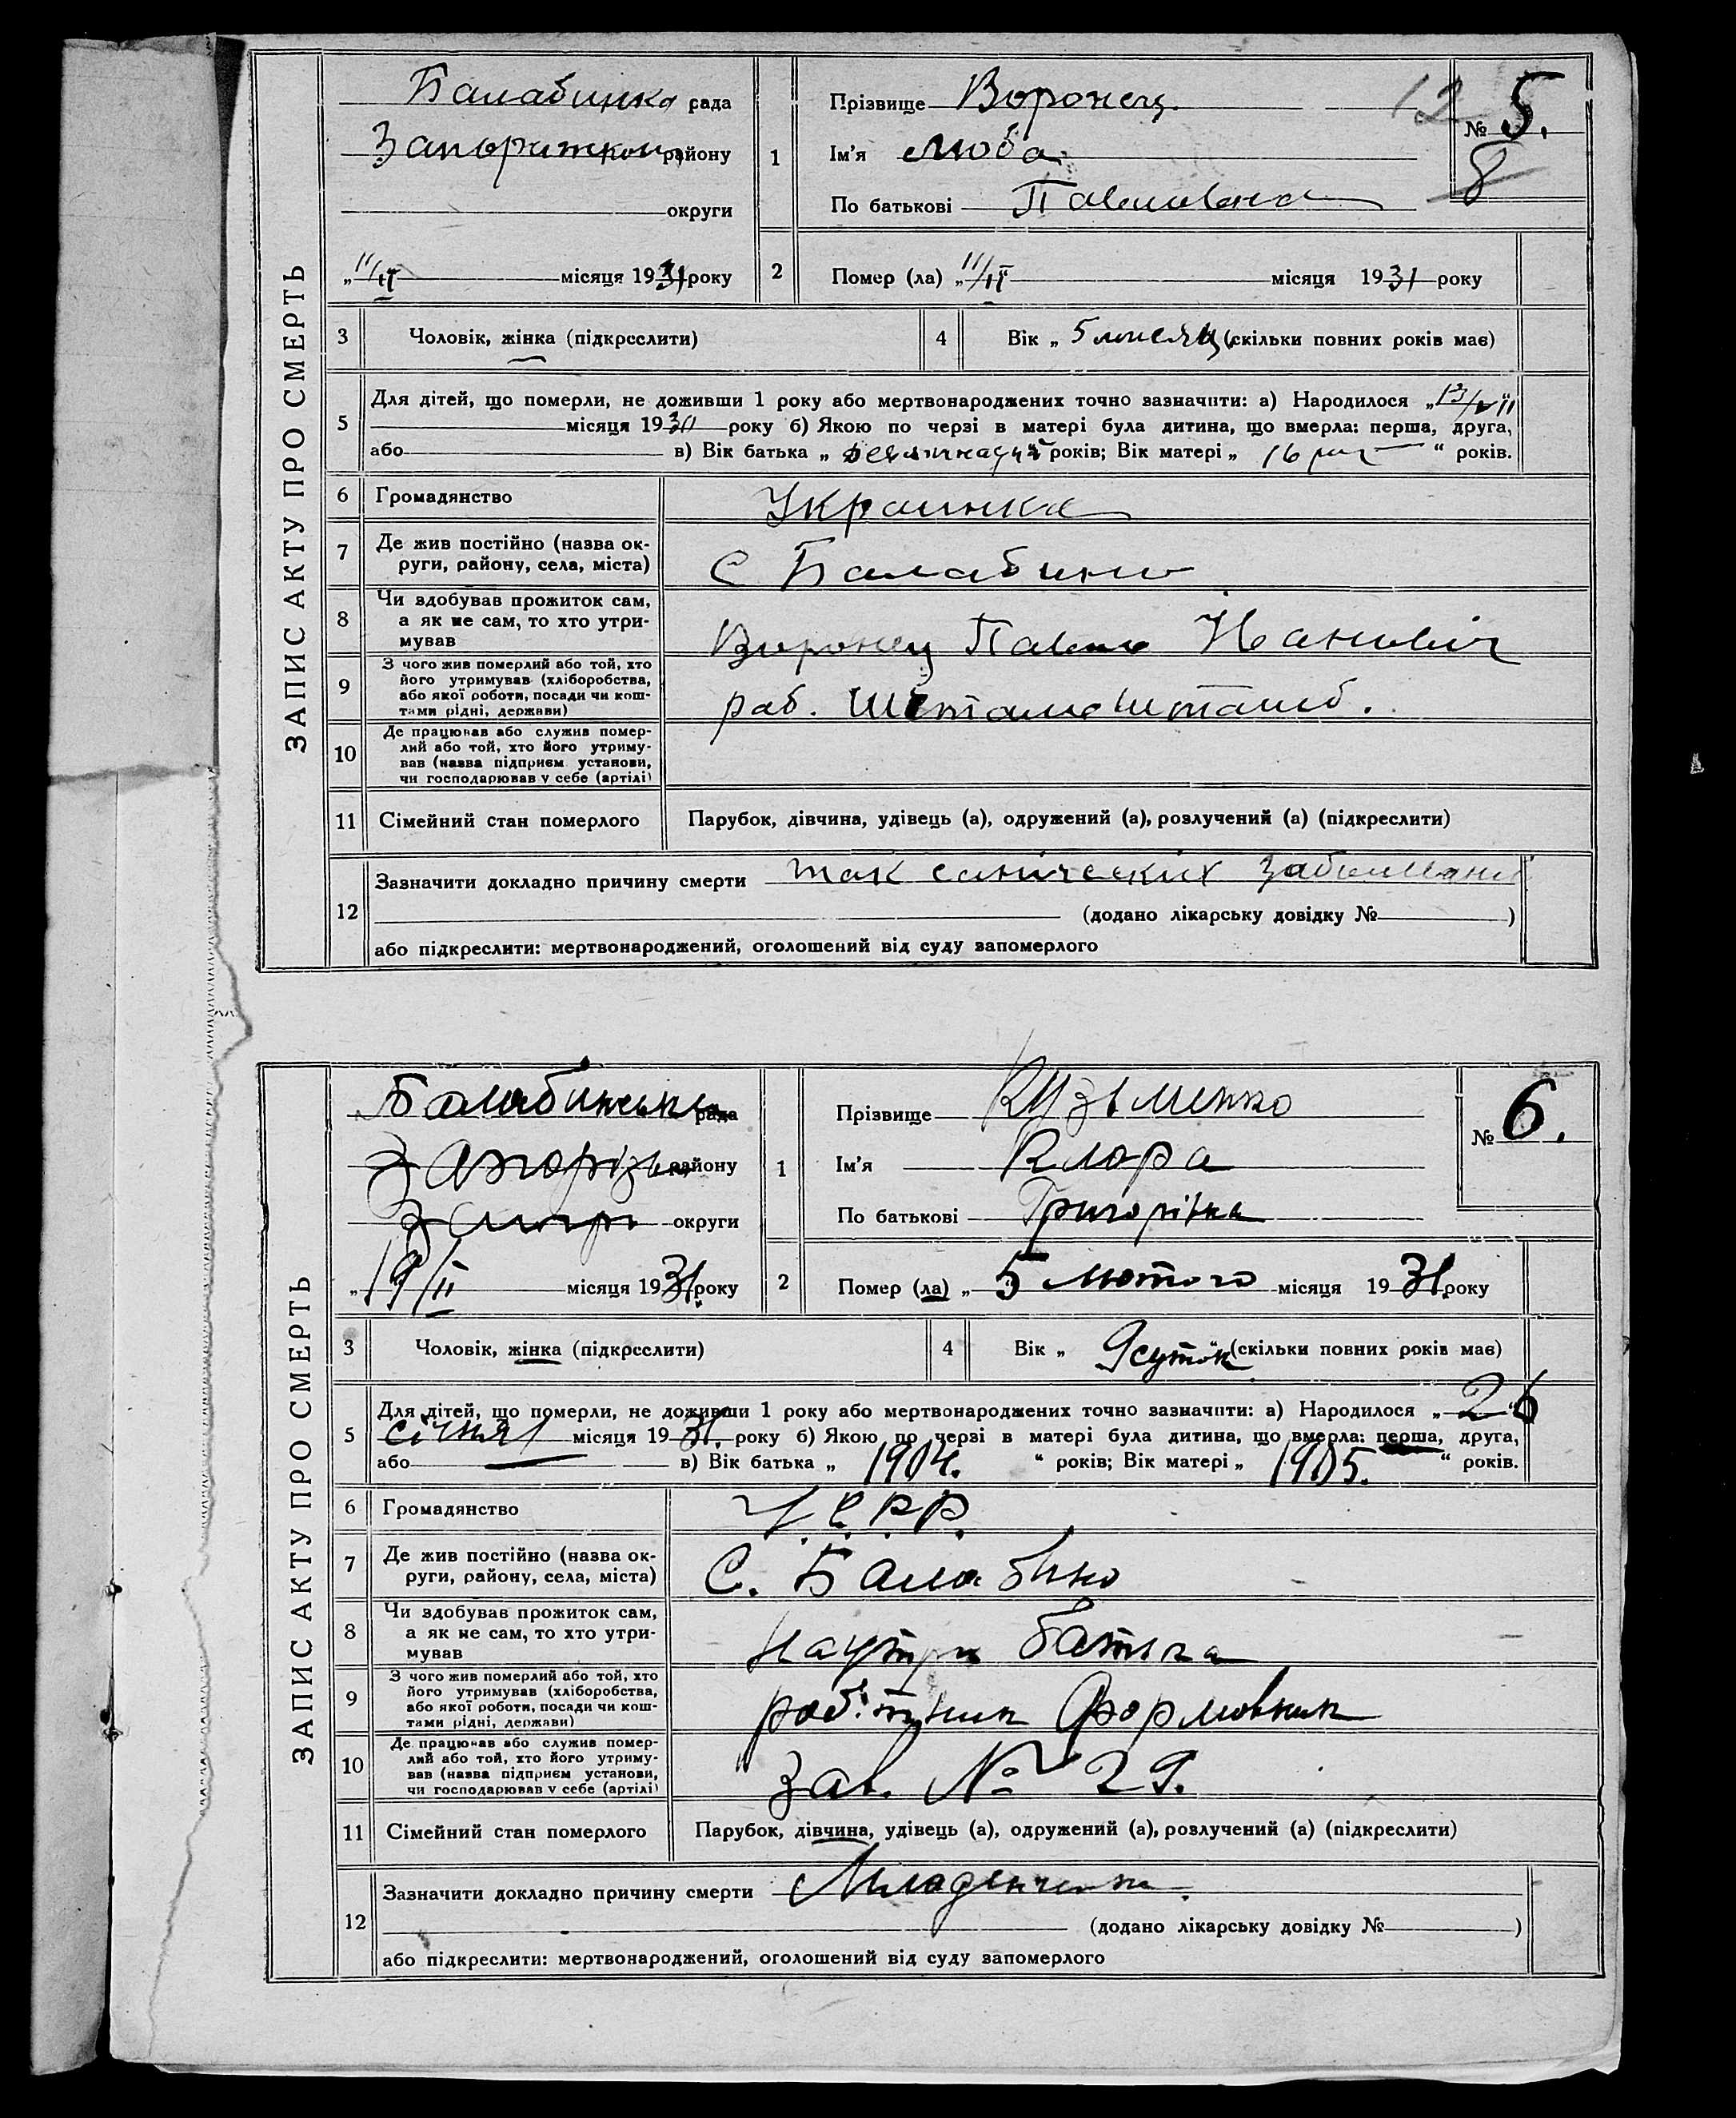 ЗАПИС АКТУ ПРО СМЕРТЬ
Балабинка рада
району
округи
„11/II місяця 1931 року
1
Прізвище Воронец.
Ім'я Люба
По батькові Павловна
12
№ 5.
8
2 Помер (ла) „11/II місяця 1931 року
3 Чоловік, жінка (підкреслити)
4 Вік „ 5 (скільки повних років має)
5 Для дітей, що померли, не доживши 1 року або мертвонароджених точно зазначити: а) Народилося „13/
місяця 1930 року б) Якою по черзі в матері була дитина, що вмерла: перша, друга,
або в) Вік батька „ років; Вік матері „ 16 “ років.
6 Громадянство Украинка
7 Де жив постійно (назва ок-
руги, району, села, міста) С Балабино
8 Чи здобував прожиток сам,
а як не сам, то хто утри-
мував Воронец Павло
9 З чого жив померлий або той, хто
його утримував (хліборобства,
або якої роботи, посади чи кош-
тами рідні, держави) раб.
10 Де працював або служив помер-
лий або той, хто його утриму-
вав (назва підприєм установи,
чи господарював у себе (артілі)
11 Сімейний стан померлого Парубок, дівчина, удівець (а), одружений (а), розлучений (а) (підкреслити)
12 Зазначити докладно причину смерти
(додано лікарську довідку № )
або підкреслити: мертвонароджений, оголошений від суду запомерлого
ЗАПИС АКТУ ПРО СМЕРТЬ
Балабинська рада
району
округи
„19/II місяця 1931. року
1
Прізвище Кузьменко
Ім'я Клора
По батькові Григорівна
№ 6.
2 Помер (ла) „ 5 лютого місяця 1931. року
3 Чоловік, жінка (підкреслити)
4 Вік „ 9 суток “ (скільки повних років має)
5 Для дітей, що померли, не доживши 1 року або мертвонароджених точно зазначити: а) Народилося „ 26
січня місяця 1931. року б) Якою по черзі в матері була дитина, що вмерла: перша, друга,
або — в) Вік батька „ 1904. “ років; Вік матері „ 1905. “ років.
6 Громадянство У.С.Р.Р.
7 Де жив постійно (назва ок-
руги, району, села, міста) С. Балабино
8 Чи здобував прожиток сам,
а як не сам, то хто утри-
мував батька
9 З чого жив померлий або той, хто
його утримував (хліборобства,
або якої роботи, посади чи кош-
тами рідні, держави) робітник Формовник
10 Де працював або служив помер-
лий або той, хто його утриму-
вав (назва підприєм установи,
чи господарював у себе (артілі) Зав. № 29.
11 Сімейний стан померлого Парубок, дівчина, удівець (а), одружений (а), розлучений (а) (підкреслити)
12 Зазначити докладно причину смерти
(додано лікарську довідку № )
або підкреслити: мертвонароджений, оголошений від суду запомерлого